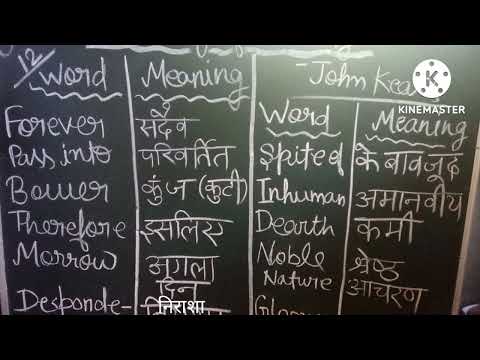 12
Word Meaning
Forever सदैव
Pass into परिवर्तित
Bower कुंज (कुटी)
Therefore इसलिए
Morrow अगला दिन
Desponde- निराशा
-John Kea
KINEMASTER
Word Meaning
Spited के बावजूद
Inhuman अमानवीय
Dearth कमी
Noble Nature श्रेष्ठ आचरण